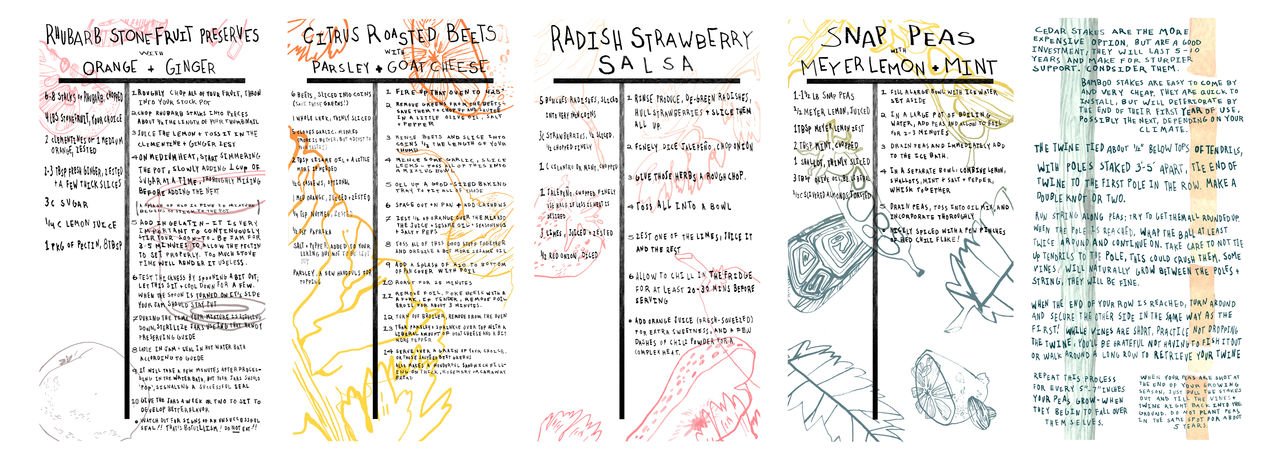 RHUBARB STONEFRUIT PRESERVES
WITH
ORANGE + GINGER
6-8 STALKS OF RHUBARB, CHOPPED
4 LBS STONEFRUIT, YOUR CHOICE
2 CLEMENTINES OR 1 MEDIUM
ORANGE, ZESTED
1-3 TBSP FRESH GINGER, ZESTED
+ A FEW THICK SLICES
3C SUGAR
1/4 C LEMON JUICE
1 PKG OF PECTIN,
1 ROUGHLY CHOP ALL OF YOUR FRUIT, THROW
INTO YOUR STOCK POT
2 CHOP RHUBARB STALKS INTO PIECES
ABOUT 1/2 THE LENGTH OF YOUR THUMBNAIL
3 JUICE THE LEMON + TOSS IT IN THE
CLEMENTINE + GINGER ZEST
4 ON MEDIUM HEAT, START SIMMERING
THE POT, SLOWLY ADDING 1 CUP OF
SUGAR AT A TIME, THOROUGHLY MIXING
BEFORE ADDING THE NEXT
5 ADD IN GELATIN - IT IS VERY
IMPORTANT TO CONTINUOUSLY
STIR YOUR SOON-TO-BE JAM FOR
3-5 MINUTES TO ALLOW THE PECTIN
TO SET PROPERLY. TOO MUCH STORE
TIME WILL RENDER IT USELESS.
6 TEST THICKNESS BY SPOONING A BIT OUT;
LET THIS SIT + COOL DOWN FOR A FEW.
WHEN THE SPOON IS TURNED ON IT'S SIDE
YOUR JAM SHOULD STAY PUT
7 DURING THE TIME YOUR MIXTURE IS
DOWN, STERILIZE JARS
PRESERVING GUIDE
8 LADLE IN JAM + SEAL IN HOT WATER BATH
ACCORDING TO GUIDE
9 IT WILL TAKE A FEW MINUTES AFTER PROCESSING
IN THE WATER BATH, BUT YOUR JARS SHOULD
"POP", SIGNALING A SUCCESSFUL SEAL
10 GIVE THE JARS A WEEK OR TWO TO SET TO
DEVELOP BETTER FLAVOR
• WATCH OUT FOR SIGNS OF AN
SEAL!! THAT'S BOTULISM! DO NOT EAT!!
CITRUS ROASTED BEETS
WITH
PARSLEY + GOAT CHEESE
6 BEETS, SLICED INTO COINS
(SAVE THOSE GREENS!)
1 WHOLE LEEK, THINLY SLICED
2 TBSP SESAME OIL + A LITTLE
MORE IF NEEDED
1/2 CASHEWS, OPTIONAL
1 MED ORANGE, JUICED + ZESTED
1/4 TSP NUTMEG, ZESTED
1/2 TSP PAPRIKA
SALT + PEPPER, ADDED TO YOUR
LIKING
PARSLEY, A FEW HANDFULS FOR
TOPPING
1 FIRE UP THAT OVEN TO 425°
2 REMOVE GREENS FROM THE BEETS
SAVE THEM TO CHOP UP AND SAUTEE
IN A LITTLE OLIVE OIL, SALT
+ PEPPER
3 RINSE BEETS AND SLICE INTO
COINS 1/2 THE LENGTH OF YOUR
THUMBNAIL
4 MINCE SOME GARLIC, SLICE
LEEKS - TOSS ALL OF THIS IN
A MIXING BOWL
5 OIL UP A GOOD-SIZED BAKING
TRAY TO FIT ALL OF THIS
6 SPACE OUT ON PAN + ADD CASHEWS
7 ZEST 1/2 OF ORANGE OVER THE MELANGE
THE JUICE + SESAME OIL + SEASONINGS
+ SALT + PEPS
8 TOSS ALL OF THIS GOOD STUFF TOGETHER
AND DRIZZLE A BIT MORE SESAME OIL
9 ADD A SPLASH OF H2O TO BOTTOM
OF PAN COVER WITH FOIL
10 ROAST FOR 25 MINUTES
11 REMOVE FOIL, POKE BEETS WITH
A FORK, IF TENDER, REMOVE FOIL
BROIL FOR ABOUT 3 MINUTES.
12 TURN OFF BROILER, REMOVE FROM THE OVEN
13 TOSS PARSLEY SPRINKLE OVER TOP WITH A
LIBERAL AMOUNT OF GOAT CHEESE AND A BIT
MORE PEPPER
14 SERVE OVER A GREEN OF YOUR CHOICE,
OR THOSE SAUTEED BEET GREENS
ALSO MAKES A WONDERFUL SANDWICH FILLING
ON THICK, ROSEMARY OR CARAWAY
BREAD
RADISH STRAWBERRY
SALSA
5 BUNCHES RADISHES, SLICED
INTO VERY THIN COINS
3C STRAWBERRIES, 1/2 SLICED,
1/2 CHOPPED FINELY
1 C CILANTRO OR MINT, CHOPPED
1 JALEPEÑO, CHOPPED FINELY
1/2 THE HALF IF LESS HEAT IS
DESIRED
3 LIMES, JUICED + ZESTED
1/2 RED ONION, DICED
1 RINSE PRODUCE, DE-GREEN RADISHES,
HULL STRAWBERRIES + SLICE THEM
ALL UP.
2 FINELY DICE JALEPEÑO, CHOP ONION
3 GIVE THOSE HERBS A ROUGH CHOP.
4 TOSS ALL INTO A BOWL
5 ZEST ONE OF THE LIMES, JUICE IT
AND THE REST
6 ALLOW TO CHILL IN THE FRIDGE
FOR AT LEAST 20-30 MINS BEFORE
SERVING
• ADD ORANGE JUICE (FRESH-SQUEEZED)
FOR EXTRA SWEETNESS, AND A FEW
DASHES OF CHILI POWDER FOR A
COMPLEX HEAT.
SNAP PEAS
WITH
MEYER LEMON + MINT
1-1 1/2 LB SNAP PEAS
1 MEYER LEMON, JUICED
1 TBSP MEYER LEMON ZEST
2 TBSP MINT, CHOPPED
1 SHALLOT, THINLY SLICED
3 TBSP OLIVE OIL
1 FILL A LARGE BOWL WITH ICE WATER
SET ASIDE
2 IN A LARGE POT OF BOILING
WATER, ADD PEAS AND ALLOW TO BOIL
FOR 2-3 MINUTES
3 DRAIN PEAS AND IMMEDIATELY ADD
TO THE ICE BATH.
4 IN A SEPARATE BOWL: COMBINE LEMON,
SHALLOTS, MINT + SALT + PEPPER,
WHISK TOGETHER
5 DRAIN PEAS, TOSS INTO OIL MIX, AND
INCORPORATE THOROUGHLY
6 NICELY SPICED WITH A FEW PINCHES
OF RED CHILI FLAKE!
CEDAR STAKES ARE THE MORE
EXPENSIVE OPTION, BUT ARE A GOOD
INVESTMENT; THEY WILL LAST 5-10
YEARS AND MAKE FOR STURDIER
SUPPORT. CONSIDER THEM.
BAMBOO STAKES ARE EASY TO COME BY
AND VERY CHEAP. THEY ARE QUICK TO
INSTALL, BUT WILL DETERIORATE BY
THE END OF THEIR FIRST YEAR OF USE,
POSSIBLY THE NEXT, DEPENDING ON YOUR
CLIMATE.
THE TWINE TIED ABOUT 1/2" BELOW TOPS OF TENDRILS,
WITH POLES STAKED 3-5' APART, TIE END OF
TWINE TO THE FIRST POLE IN THE ROW. MAKE A
DOUBLE KNOT OR TWO.
RUN STRING ALONG PEAS; TRY TO GET THEM ALL ROUNDED UP.
WHEN THE POLE IS REACHED, WRAP THE BALL AT LEAST
TWICE AROUND AND CONTINUE ON. TAKE CARE TO NOT TIE
UP TENDRILS TO THE POLE, THIS COULD CRUSH THEM, SOME
VINES WILL NATURALLY GROW BETWEEN THE POLES +
STRING, THEY WILL BE FINE.
WHEN THE END OF YOUR ROW IS REACHED, TURN AROUND
AND SECURE THE OTHER SIDE IN THE SAME WAY AS THE
FIRST! WHILE VINES ARE SHORT, PRACTICE NOT DROPPING
THE TWINE, YOU'LL BE GRATEFUL NOT HAVING TO FISH IT OUT
OR WALK AROUND A LONG ROW TO RETRIEVE YOUR TWINE
REPEAT THIS PROCESS
FOR EVERY 5"-7" INCHES
YOUR PEAS GROW-WHEN
THEY BEGIN TO FALL OVER
THEMSELVES.
WHEN YOUR PEAS ARE SHOT AT
THE END OF YOUR GROWING
SEASON, JUST PULL THE STAKES
OUT AND TILL THE VINES +
TWINE RIGHT BACK INTO THE
GROUND. DO NOT PLANT PEAS
IN THE SAME SPOT FOR ABOUT
5 YEARS.